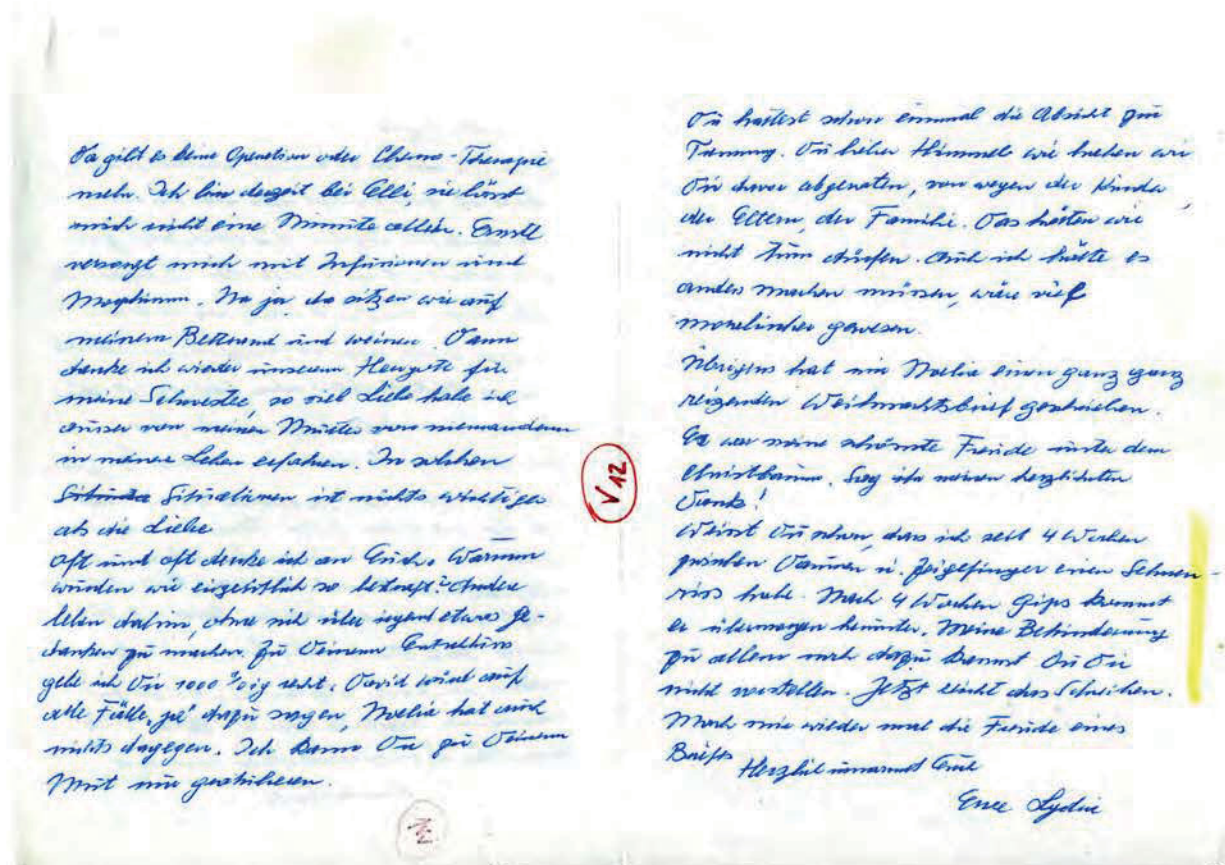 Da gibt es keine Operation oder Chemo-Therapie
mehr. Ich bin derzeit bei Elli, sie lässt
mich nicht eine Minute allein. Ewell
versorgt mich mit Infusionen und
Morphium. Na ja da sitzen wir auf
meinem Bettrand und weinen. Dann
danke ich wieder unserem Herrgott für
meine Schwester, so viel Liebe habe ich
ausser von meiner Mutter von niemandem
in meinem Leben erfahren. In solchen
Situationen ist nichts wichtiger
als die Liebe
Oft und oft denke ich an Euch. Warum
wurden wir eigentlich so bestraft? Andere
leben dahin, ohne sich über irgend etwas Ge-
danken zu machen. Zu Deinem Entschluss
gebe ich Dir 1000%ig recht. David wird auf
alle Fälle „ja" dazu sagen, Noelia hat auch
nichts dagegen. Ich kann Dir zu Deinem
Mut nur gratulieren.
V12
Du hattest schon einmal die Absicht zur
Trennung. Du lieber Himmel wir haben wir
Dir davor abgeraten, von wegen der Kinder,
der Eltern, der Familie. Das hätten wir
nicht tun dürfen. Auch ich hätte es
anders machen müssen, wäre viel
moralischer gewesen.
Übrigens hat mir Noelia einen ganz ganz
reizenden Weihnachtsbrief geschrieben.
Er war meine schönste Freude unter dem
Christbaum. Sag ihr meinen herzlichsten
Dank!
Weisst Du schon, dass ich seit 4 Wochen
zwischen Daumen u. Zeigefinger einen Sehnen-
riss habe. Nach 4 Wochen Gips kommt
er übermorgen herunter. Meine Behinderung
zu allem noch dazu kannst Du Dir
nicht vorstellen. Jetzt reicht das Schreiben.
Mach mir wieder mal die Freude eines
Briefes
Herzlich umarmt Euch
Eure Lydia